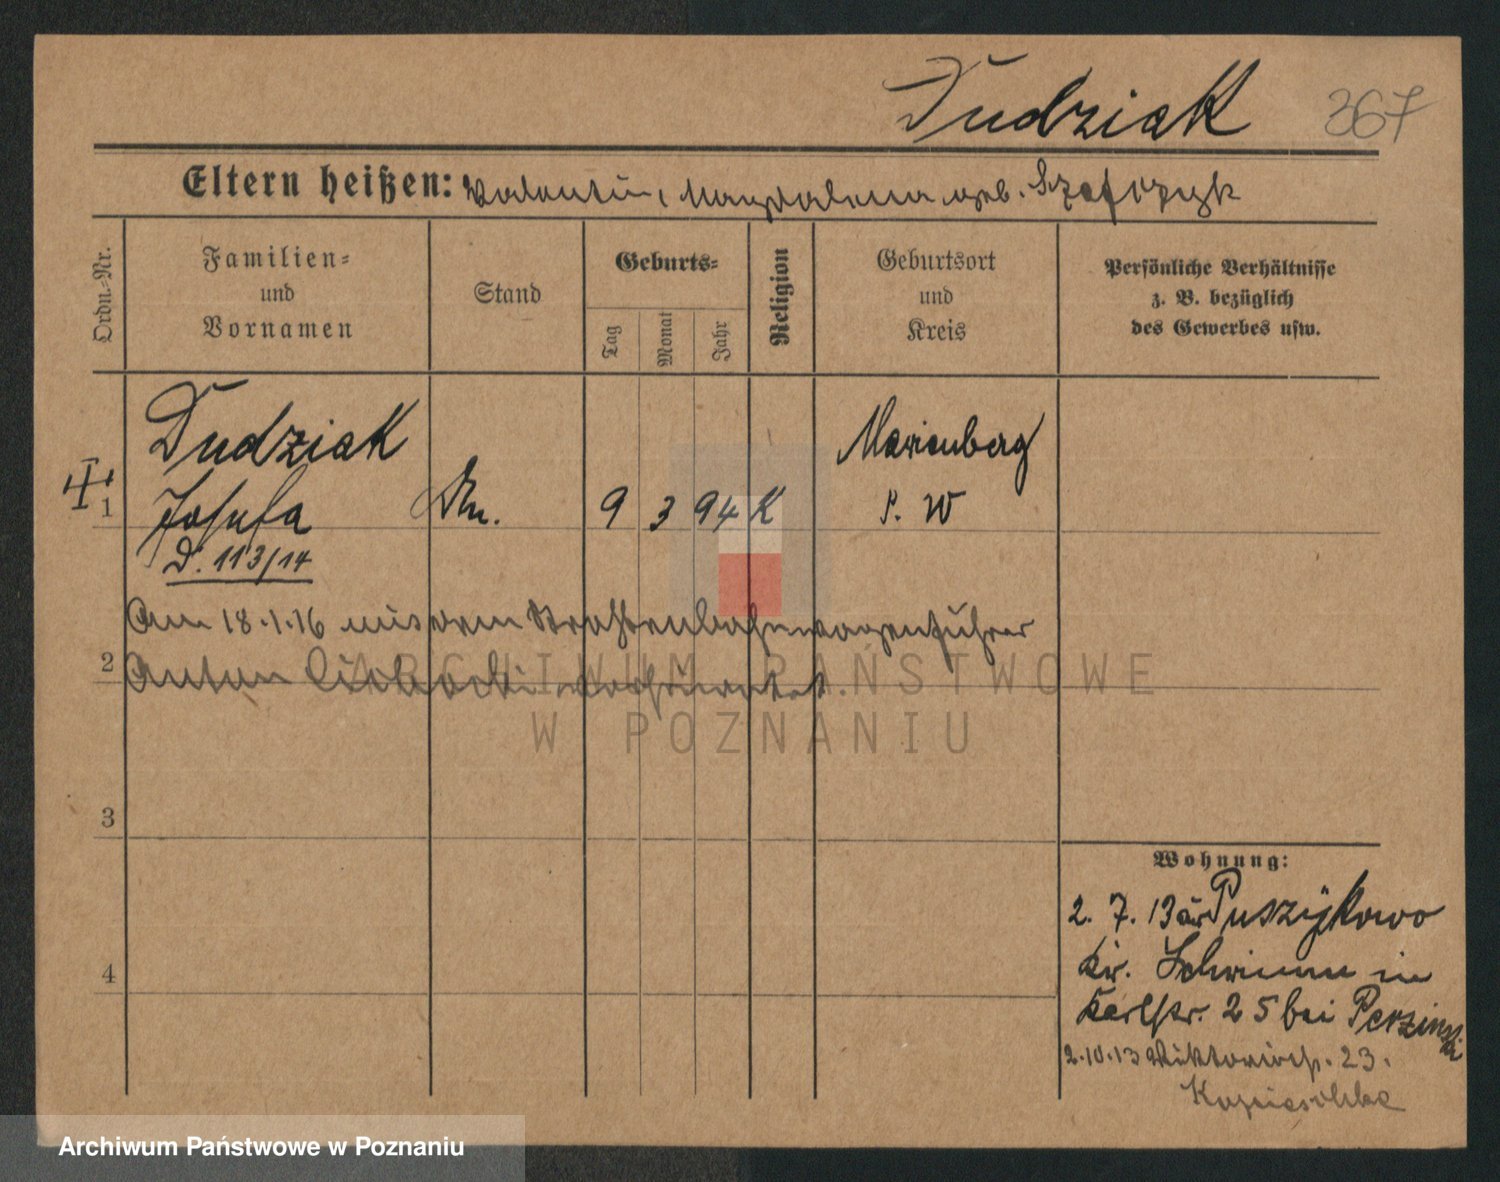 Dudziak 367
Eltern heißen: Valentin, Magdalena geb. Szafczyk
Ordn.-Nr.
Familien-
und
Vornamen
Stand
Geburts-
Tag
Monat
Jahr
Religion
Geburtsort
und
Kreis
Persönliche Verhältnisse
z. B. bezüglich
des Gewerbes usw.
Dudziak Marienberg
1 Josefa 9 3 94 K P. W
D. 113/14
Am 18.1.16 mit dem Straßenbahnwagenführer
2 Anton verheiratet.
3
4
Wohnung:
2. 7. 13 Puszÿkowo
Kr. Schrimm in
Karlstr. 25 bei Perzinski
2.10.13 Viktoriastr. 23.
ARCHIWUM PAŃSTWOWE
W POZNANIU
Archiwum Państwowe w Poznaniu